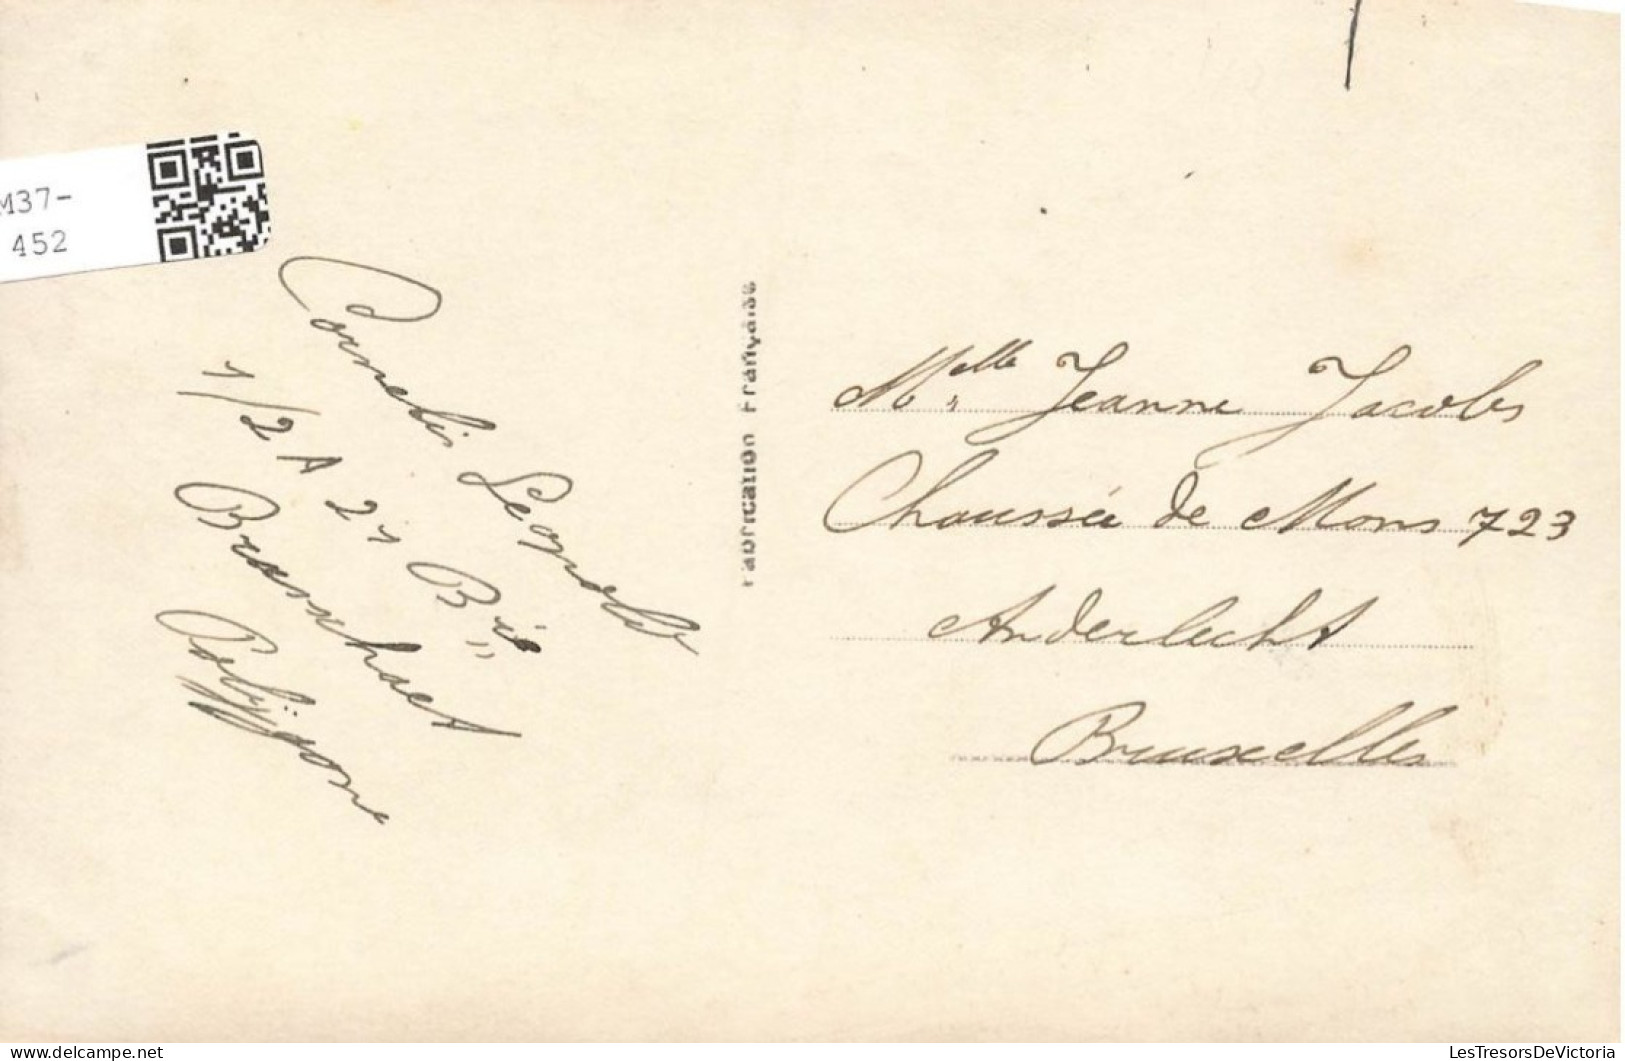 M37-
452
Cornelis Leopold
1/2 A 21 Bie
Brasschaet
Polygone
Fabrication Française
Melle Jeanne Jacobs
Chaussée de Mons 723
Anderlecht
Bruxelles
delcampe.net
LesTresorsDeVictoria